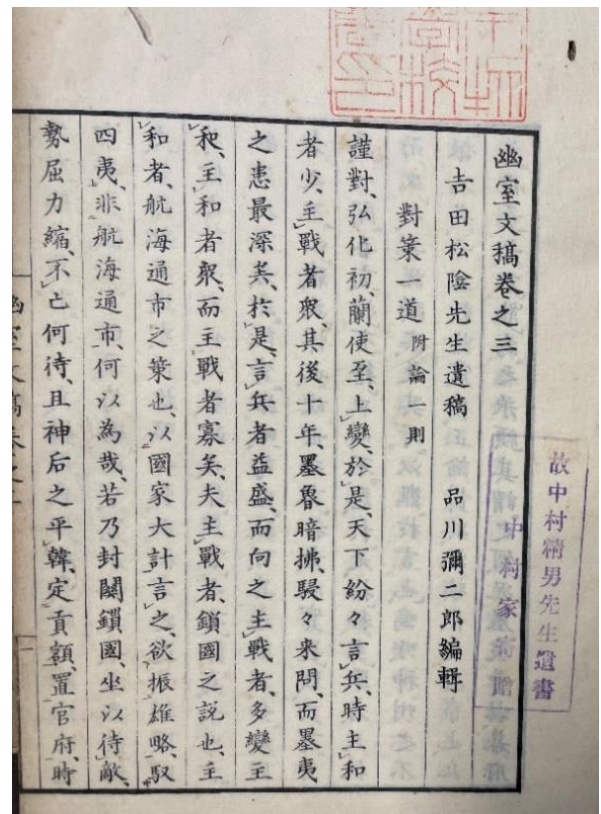 幽室文稿卷之三
吉田松陰先生遺稿 品川彌二郎編輯
對策一道 附論一則
謹對、弘化初、蘭使至、上變、於是、天下紛々言兵、時主和
者少、主戰者衆、其後十年、墨魯暗拂、駸々来問、而墨夷
之患最深矣、於是、言兵者益盛、而向之主戰者、多變主
和、主和者衆、而主戰者寡矣、夫主戰者、鎖國之説也、主
和者、航海通市之策也、以國家大計言之、欲振雄略、馭
四夷、非航海通市、何以為哉、若乃封關鎖國、坐以待敵、
勢屈力縮、不亡何待、且神后之平韓、定貢額、置官府、時
故中村精男先生遺書
中村家寄贈